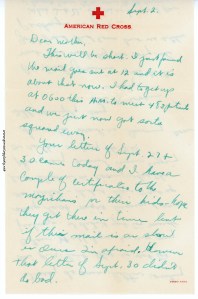 AMERICAN RED CROSS
Sept. 2.
Dear Mother,
This will be short. I just found
the mail goes out at 12 and it is
about that now. I had to get up
at 0600 this A.M. to meet
and we just now got sorta
squared away.
Your letter of Sept. 27 +
30 came today and I have a
couple of certificates to the
magicians for their kids. hope
they get this in time but
if this mail is as slow
as ours I'm afraid.
that letter of Sept. 30 didn't
do bad.